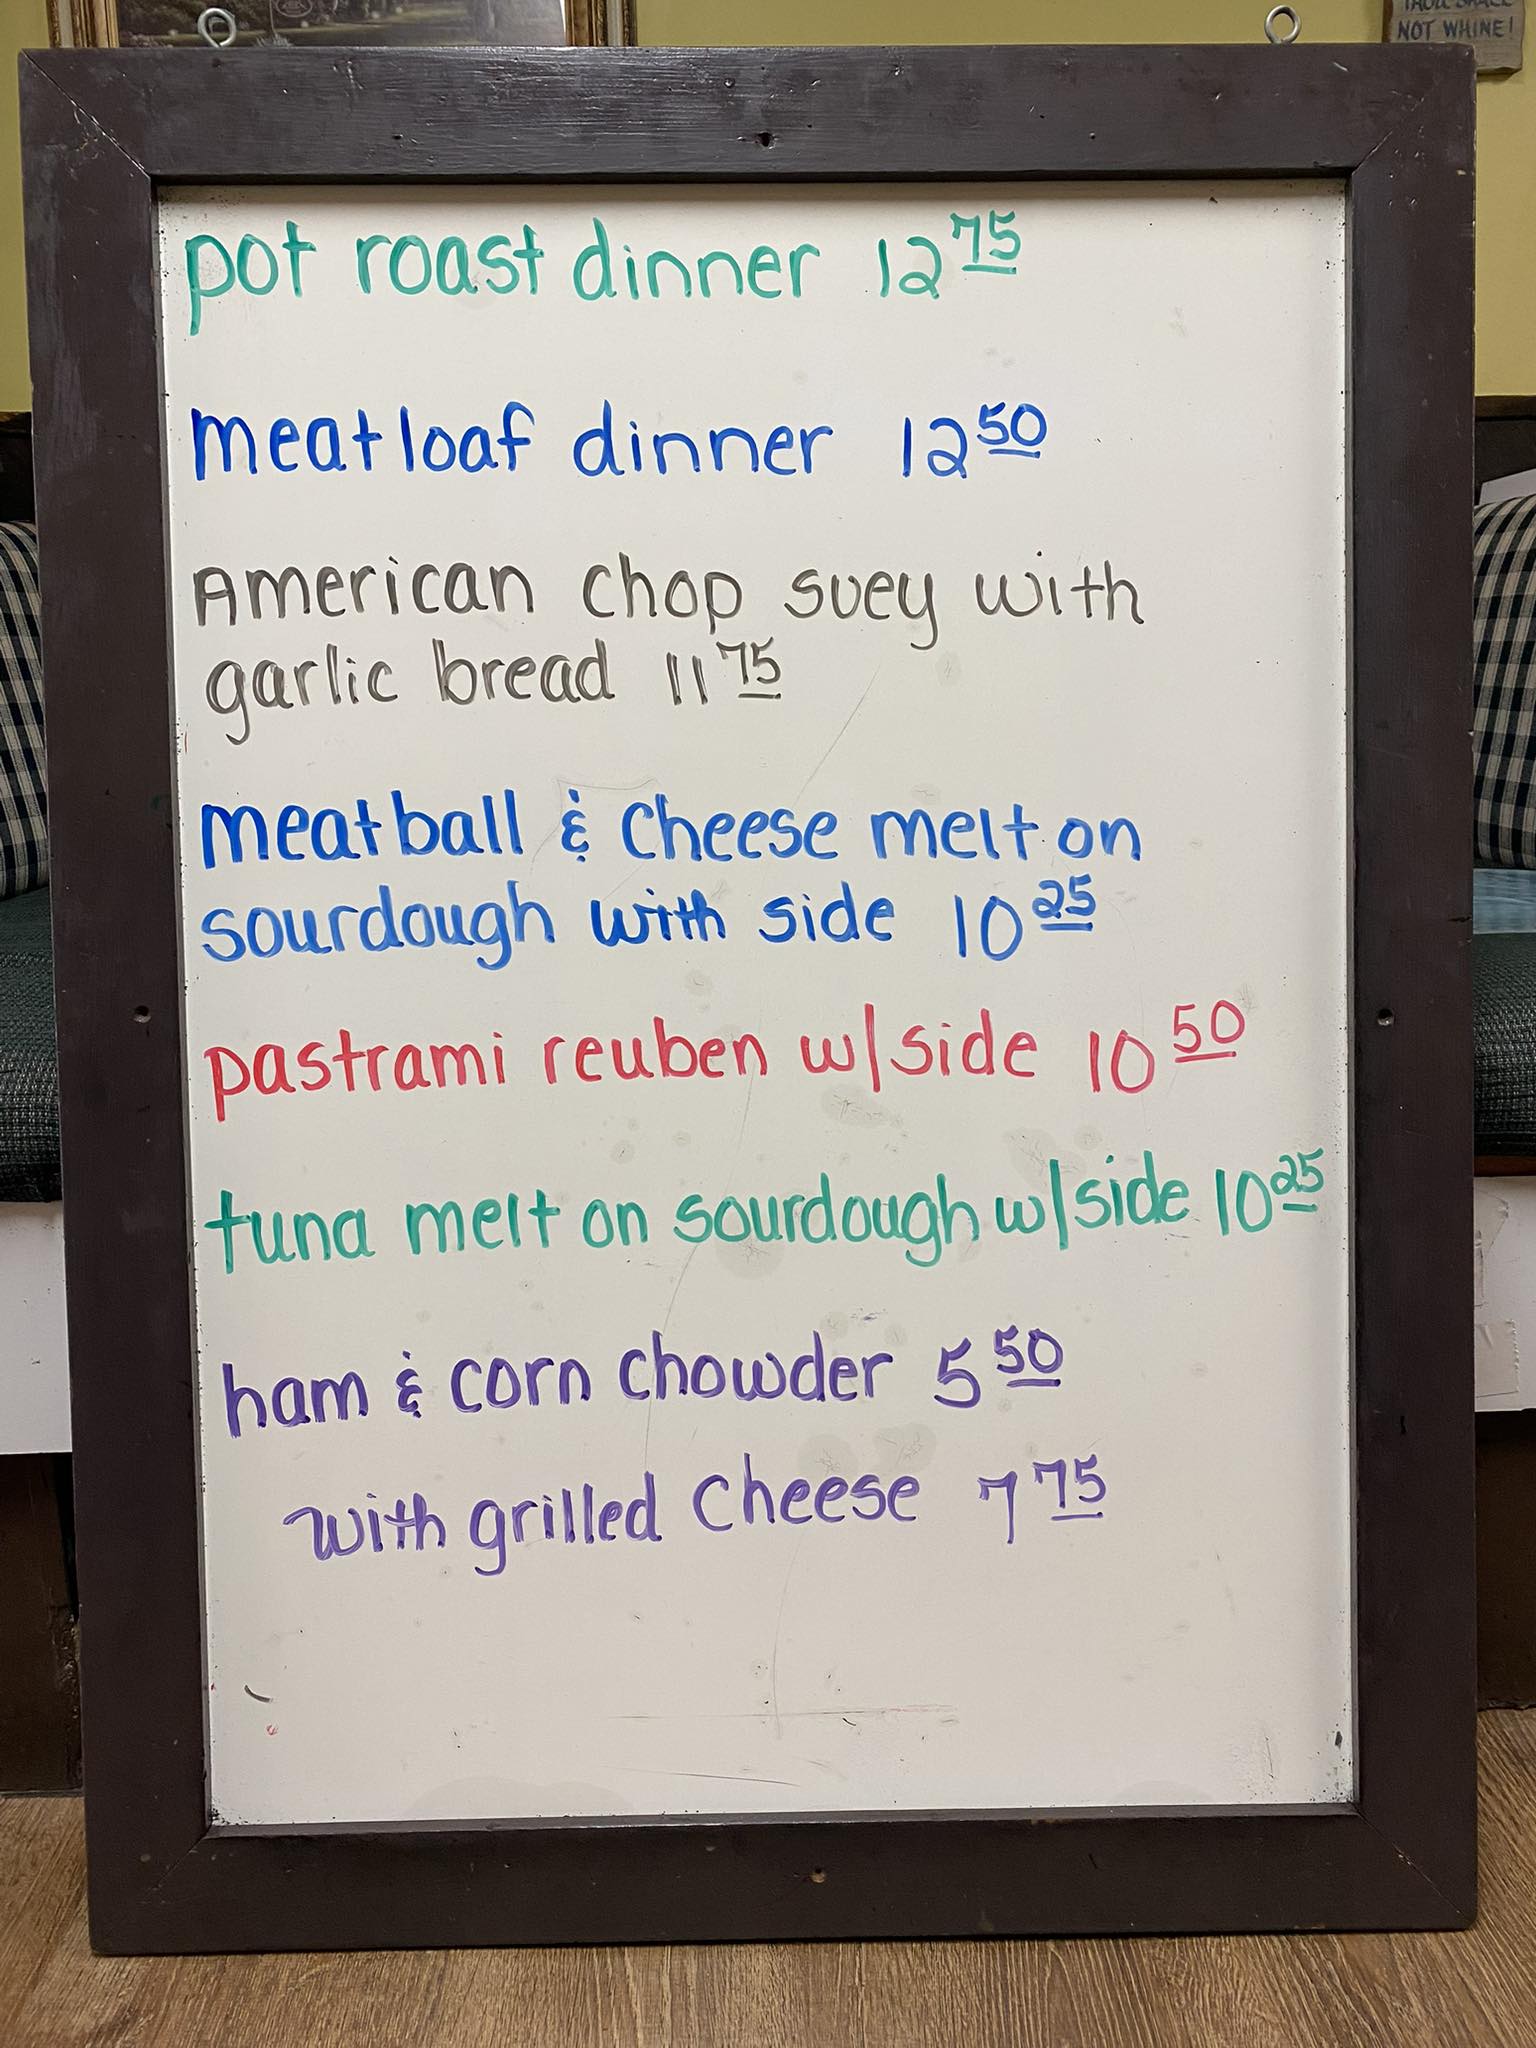 THOU SHALL
NOT WHINE!
pot roast dinner 12 75
meatloaf dinner 12 50
American chop suey with
garlic bread 11 75
meatball & cheese melt on
sourdough with side 10 25
pastrami reuben w/side 10 50
tuna melt on sourdough w/side 10 25
ham & corn chowder 5 50
with grilled cheese 7 75